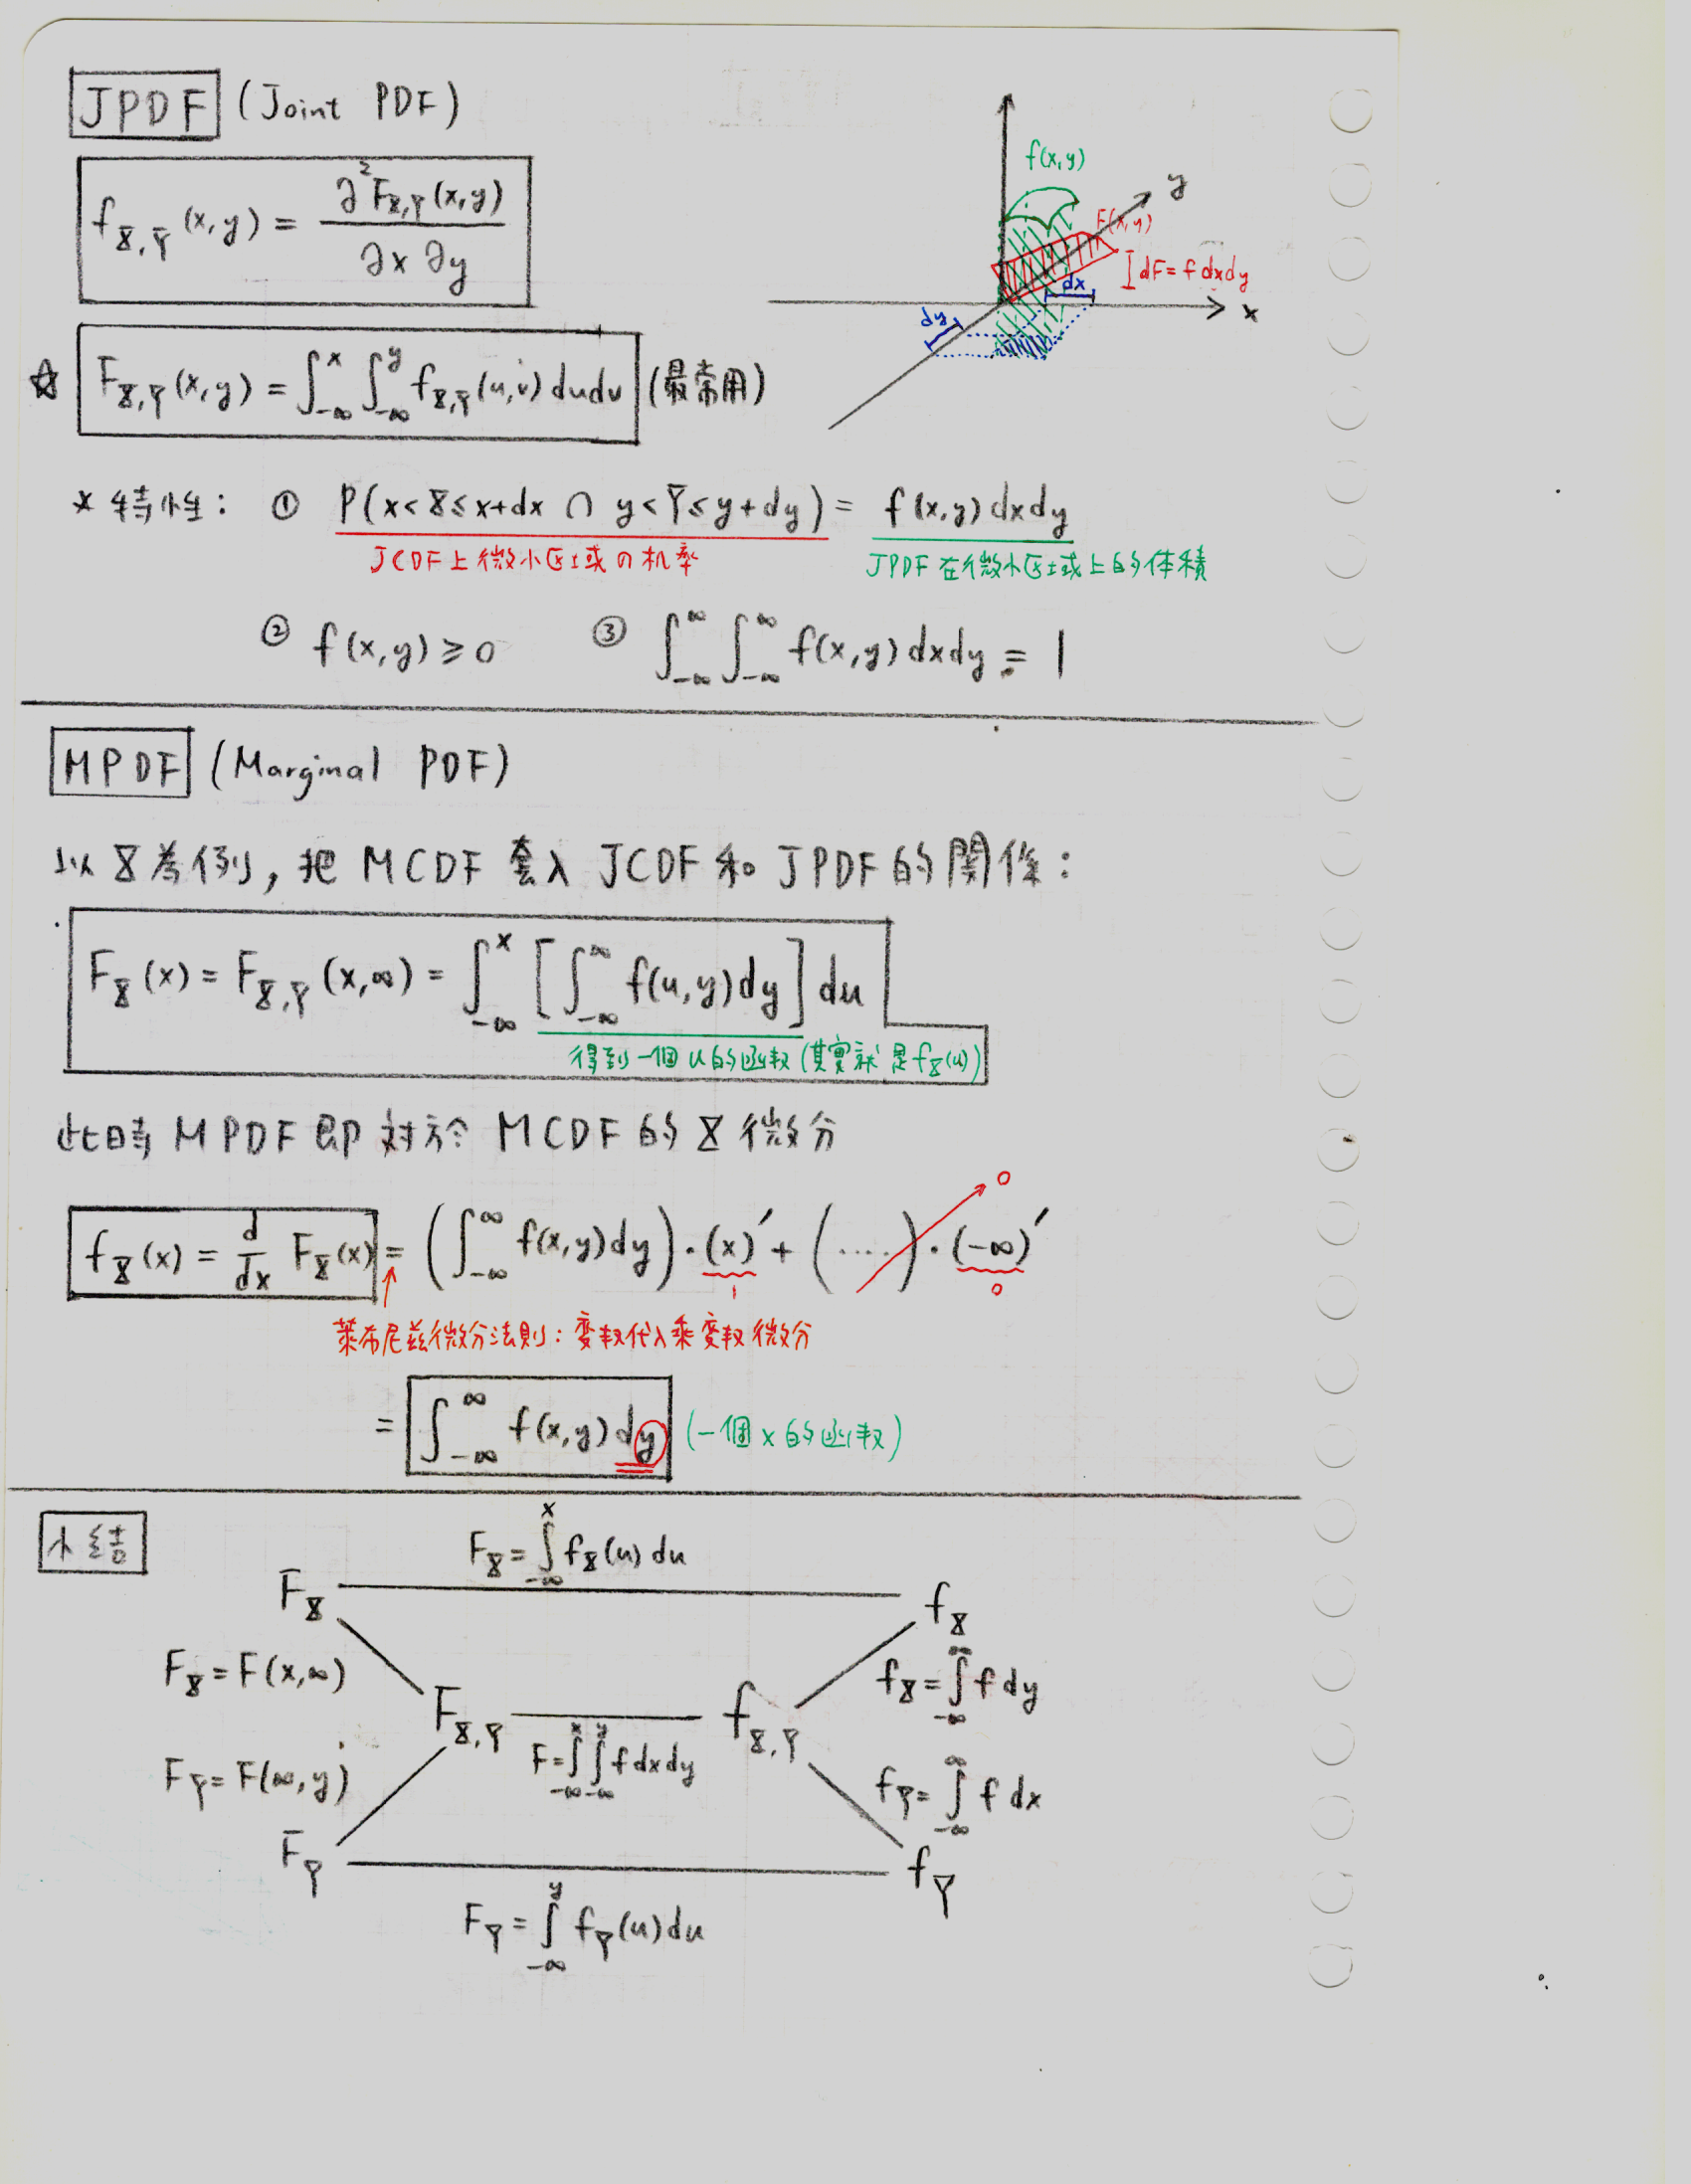 JPDF (Joint PDF)
f_{X,Y}(x,y) = ∂²F_{X,Y}(x,y) / ∂x ∂y
f(x,y)
y
F(x,y)
dF = f dxdy
dx
x
dy
☆ F_{X,Y}(x,y) = ∫_{-∞}^{x} ∫_{-∞}^{y} f_{X,Y}(u,v) dudv (最常用)
* 特性: ① P(x<X≤x+dx ∩ y<Y≤y+dy) = f(x,y) dxdy
JCDF上微小区域の机率 JPDF在微小区域上的体積
② f(x,y) ≥ 0 ③ ∫_{-∞}^{∞} ∫_{-∞}^{∞} f(x,y) dxdy = 1
MPDF (Marginal PDF)
以X為例, 把MCDF套入JCDF和JPDF的関係:
F_X(x) = F_{X,Y}(x,∞) = ∫_{-∞}^{x} [∫_{-∞}^{∞} f(u,y)dy] du
得到一個u的函数(其實就是f_X(u))
此時MPDF即対於MCDF的X微分
f_X(x) = d/dx F_X(x) = (∫_{-∞}^{∞} f(x,y)dy)·(x)′ + (....)·(-∞)′
0
1
0
萊布尼兹微分法則: 変数代入乘変数微分
= ∫_{-∞}^{∞} f(x,y) dy (一個x的函数)
小結
F_X = ∫_{-∞}^{x} f_X(u) du
F_X f_X
F_X = F(x,∞) f_X = ∫_{-∞}^{∞} f dy
F_{X,Y} f_{X,Y}
F = ∫_{-∞}^{x} ∫_{-∞}^{y} f dxdy
F_Y = F(∞,y) f_Y = ∫_{-∞}^{∞} f dx
F_Y f_Y
F_Y = ∫_{-∞}^{y} f_Y(u) du